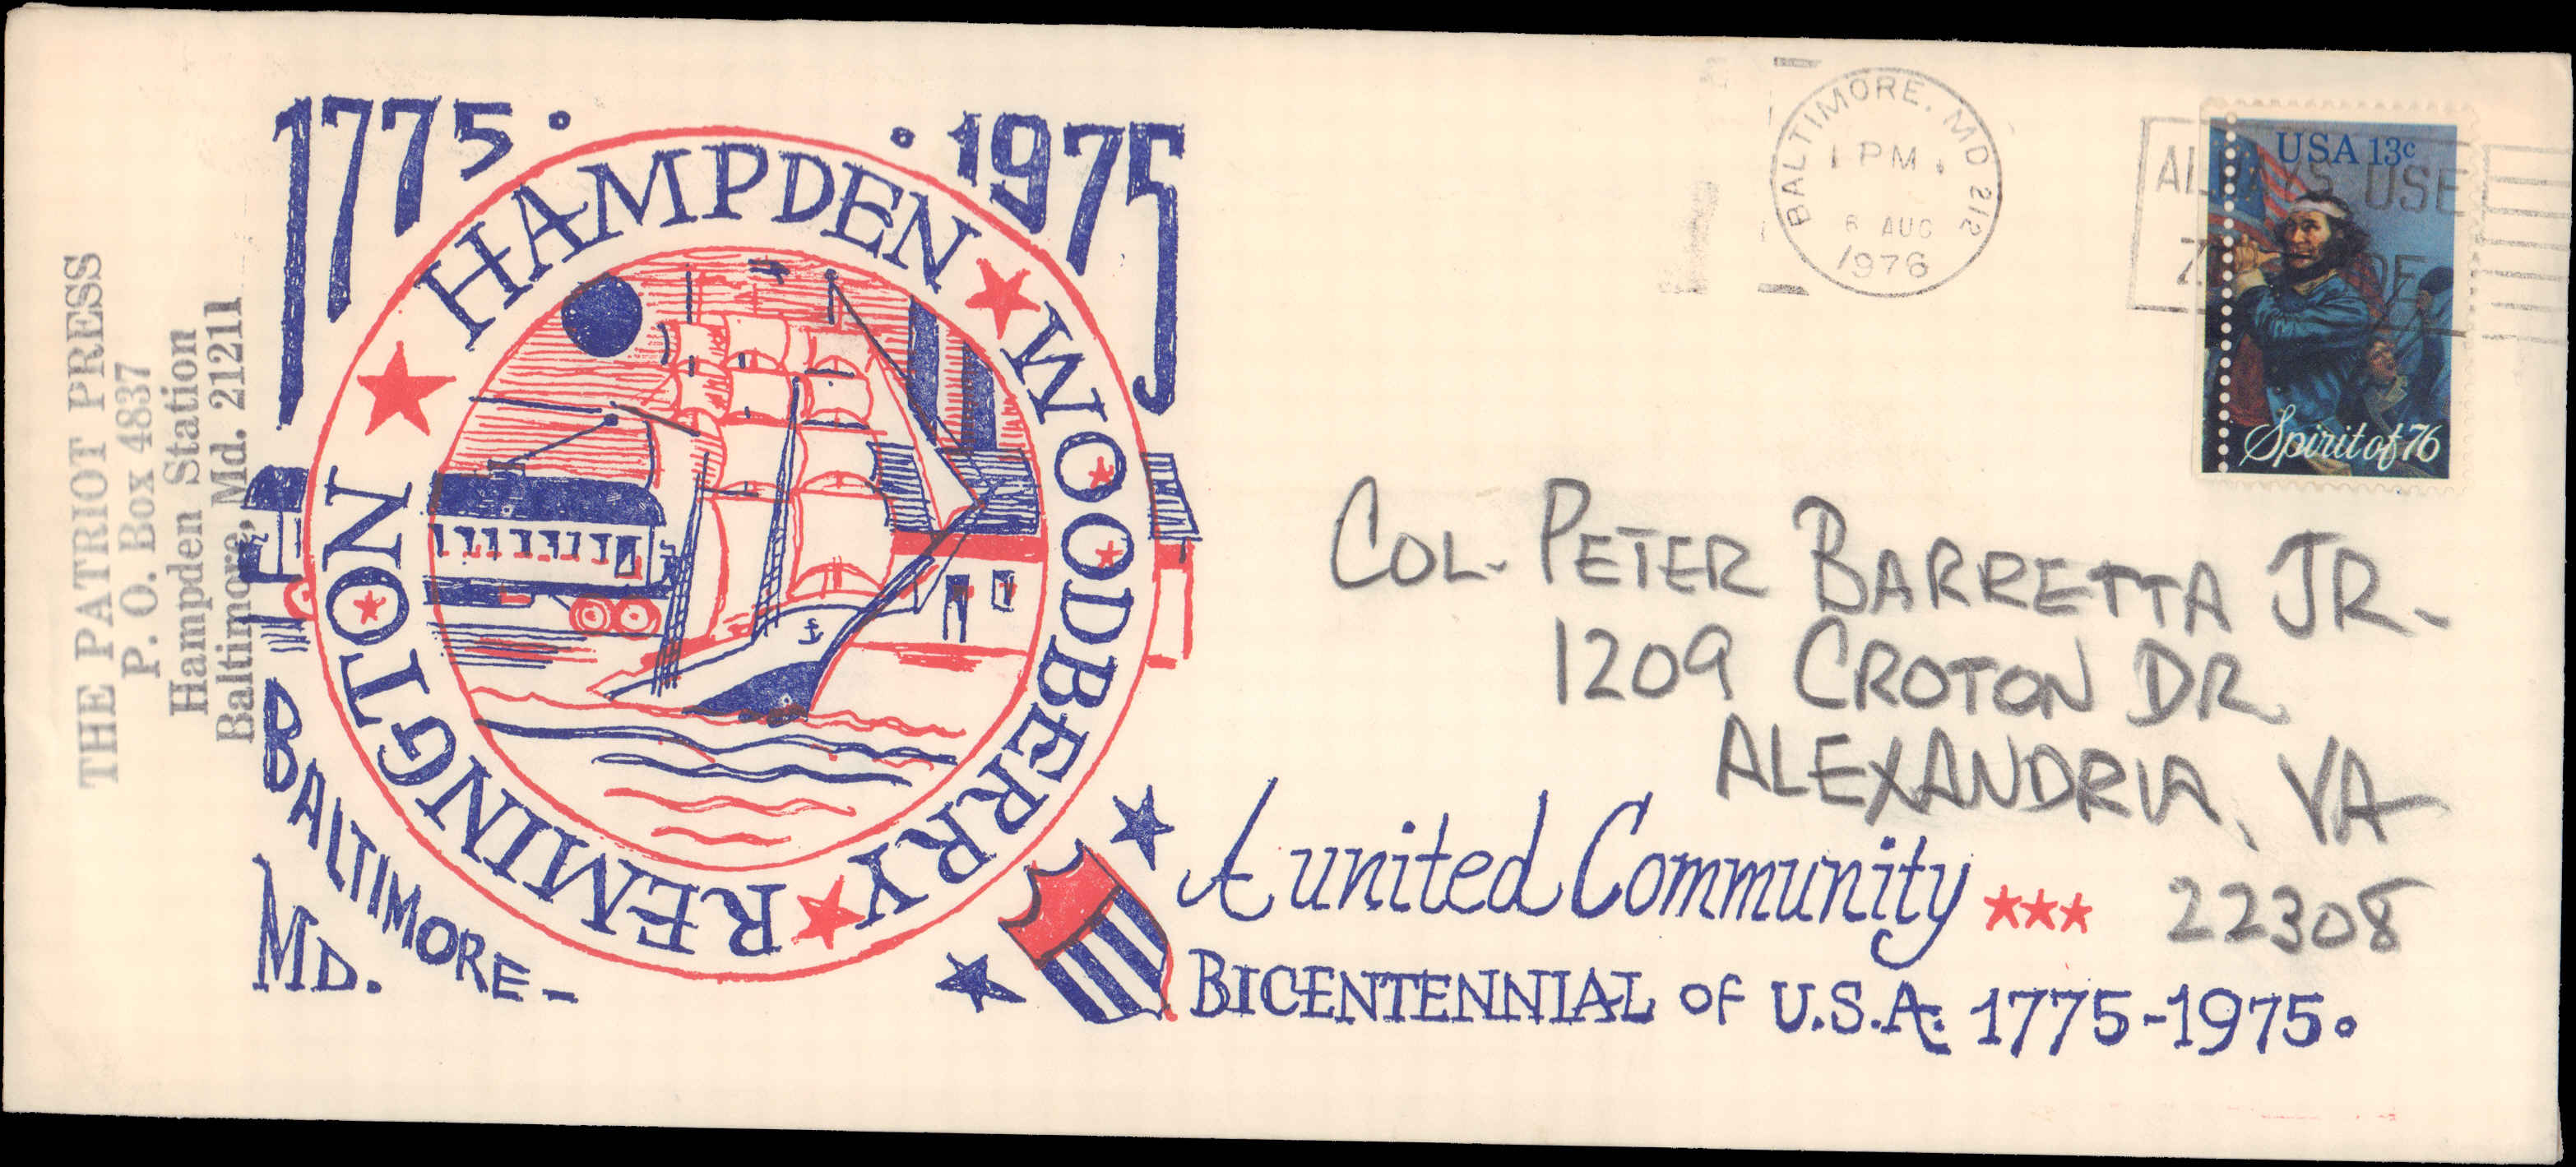 THE PATRIOT PRESS
P. O. Box 4837
Hampden Station
Baltimore, Md. 21211
1775 • • 1975
★ HAMPDEN ★ WOODBERRY ★ REMINGTON
BALTIMORE-
MD.
BALTIMORE, MD 212
1 PM
6 AUG
1976
ALWAYS USE
USA 13c
Spirit of 76
COL. PETER BARRETTA JR.
1209 CROTON DR
ALEXANDRIA, VA
22308
A united Community ★★★
BICENTENNIAL OF U.S.A. 1775-1975.